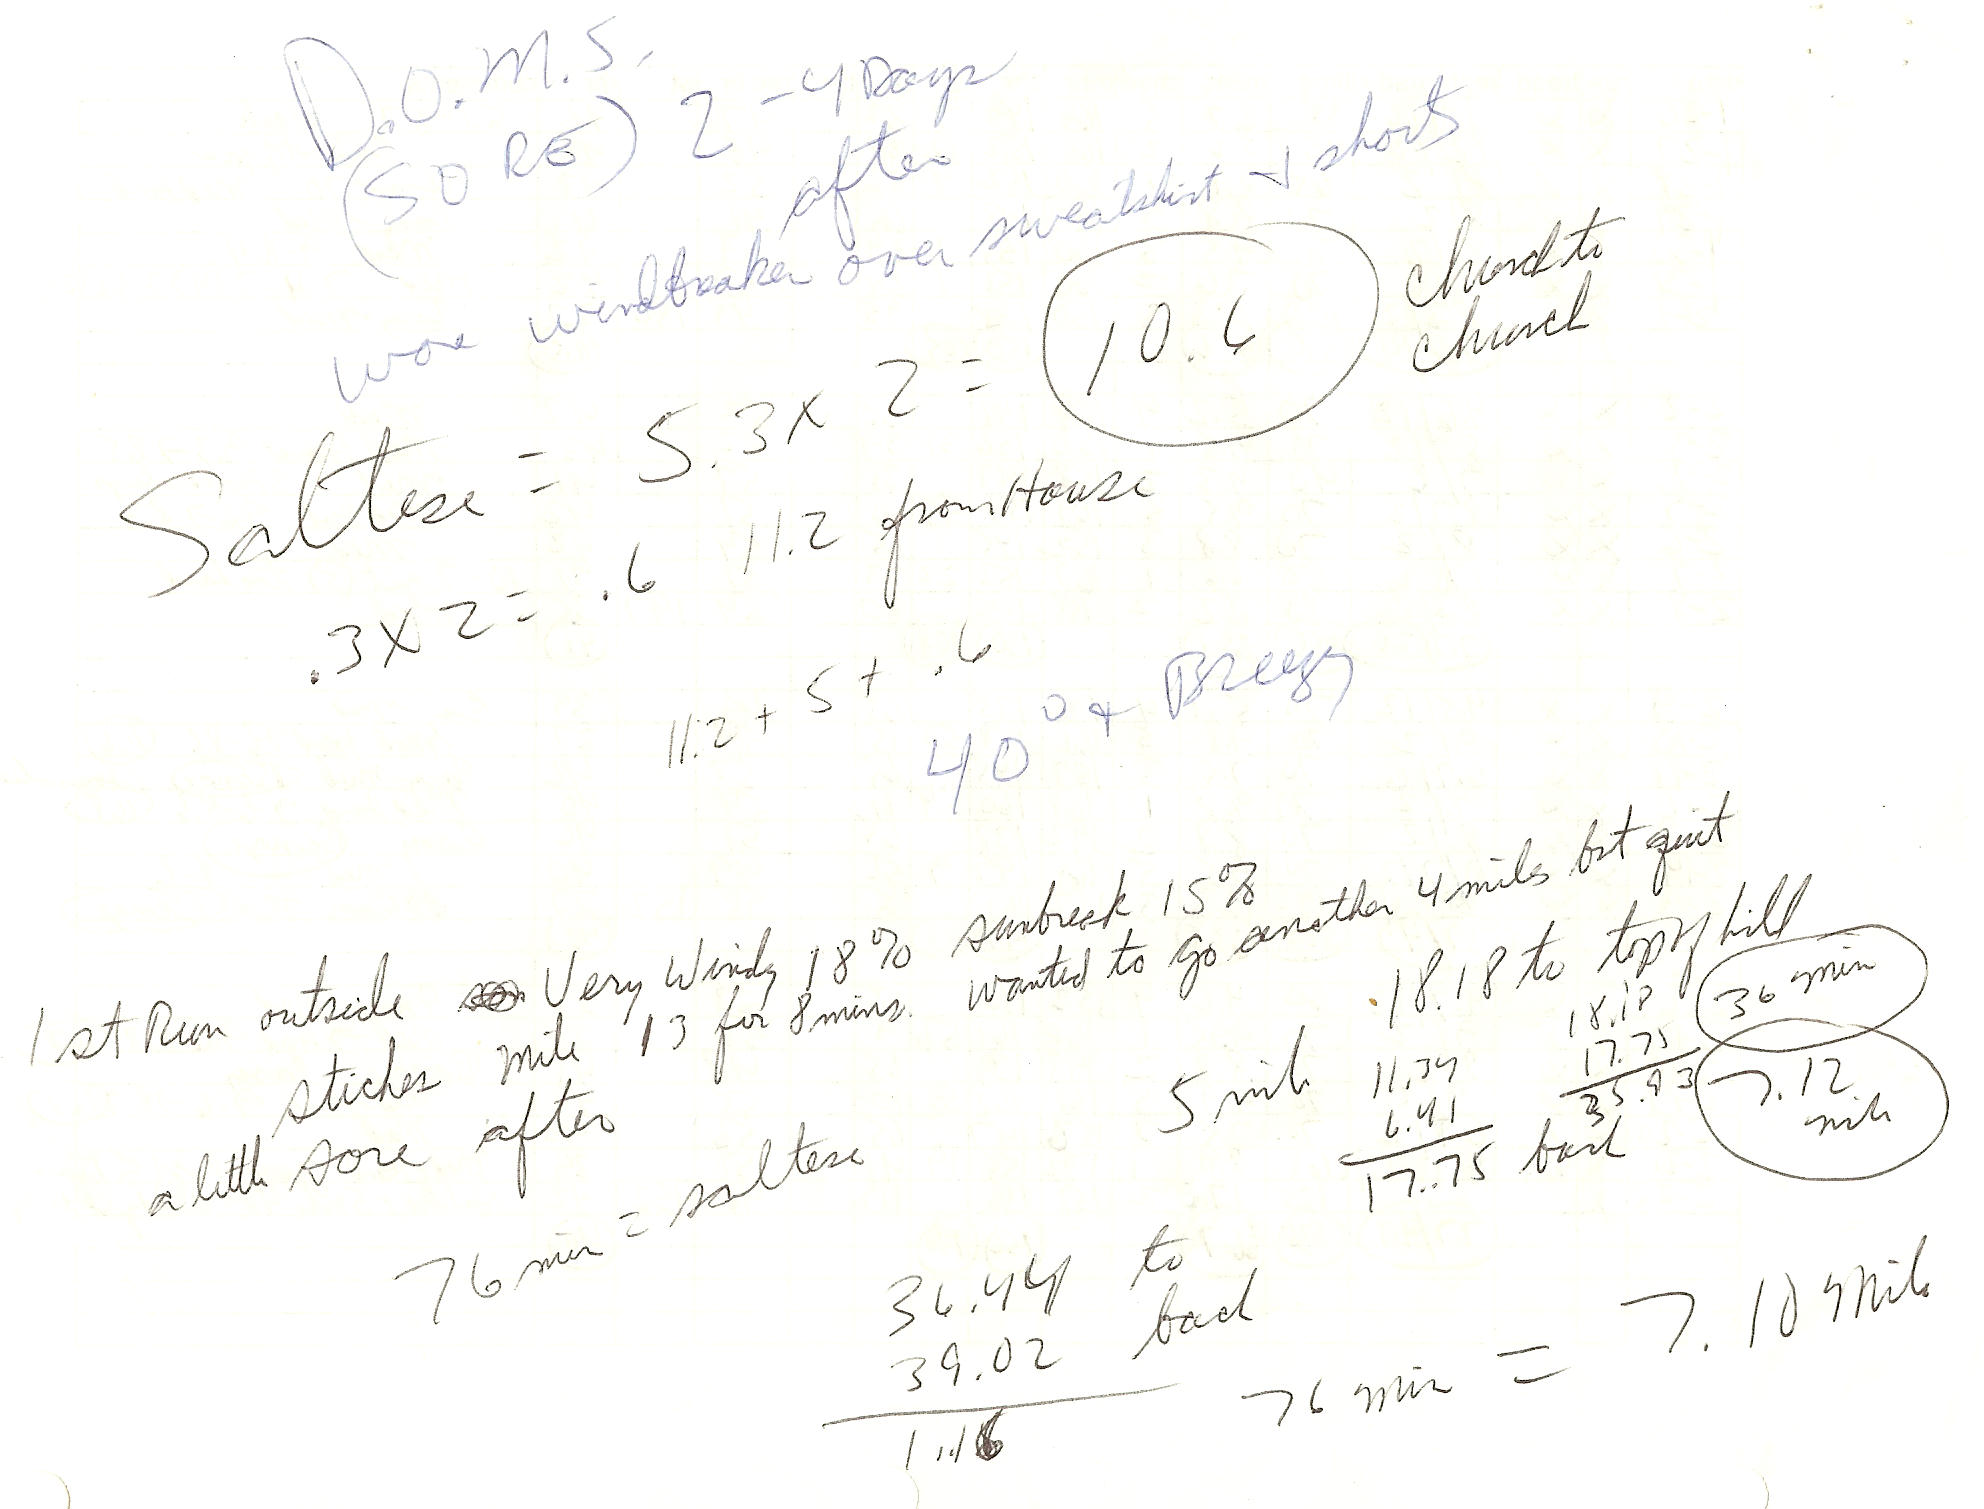 D.O.M.S.
(SORE) 2-4 Days
after
wore windbreaker over sweatshirt & shorts
Saltese = 5.3 x 2 = 10.6 church to
church
.3 x 2 = .6 11.2 from House
11.2 + 5 + .6
40° & Breezy
1st Run outside Very Windy 18% sunbreak 15%
stiches mile 13 for 8 mins. wanted to go another 4 miles but quit
a little sore after
18.18 to top of hill
5 mile 11.34 18.18 36 min
6.41 17.75
17.75 back 35.93 7.12
mile
76 min = saltese
36.44 to
39.02 back
1.16 76 min = 7.10 mile